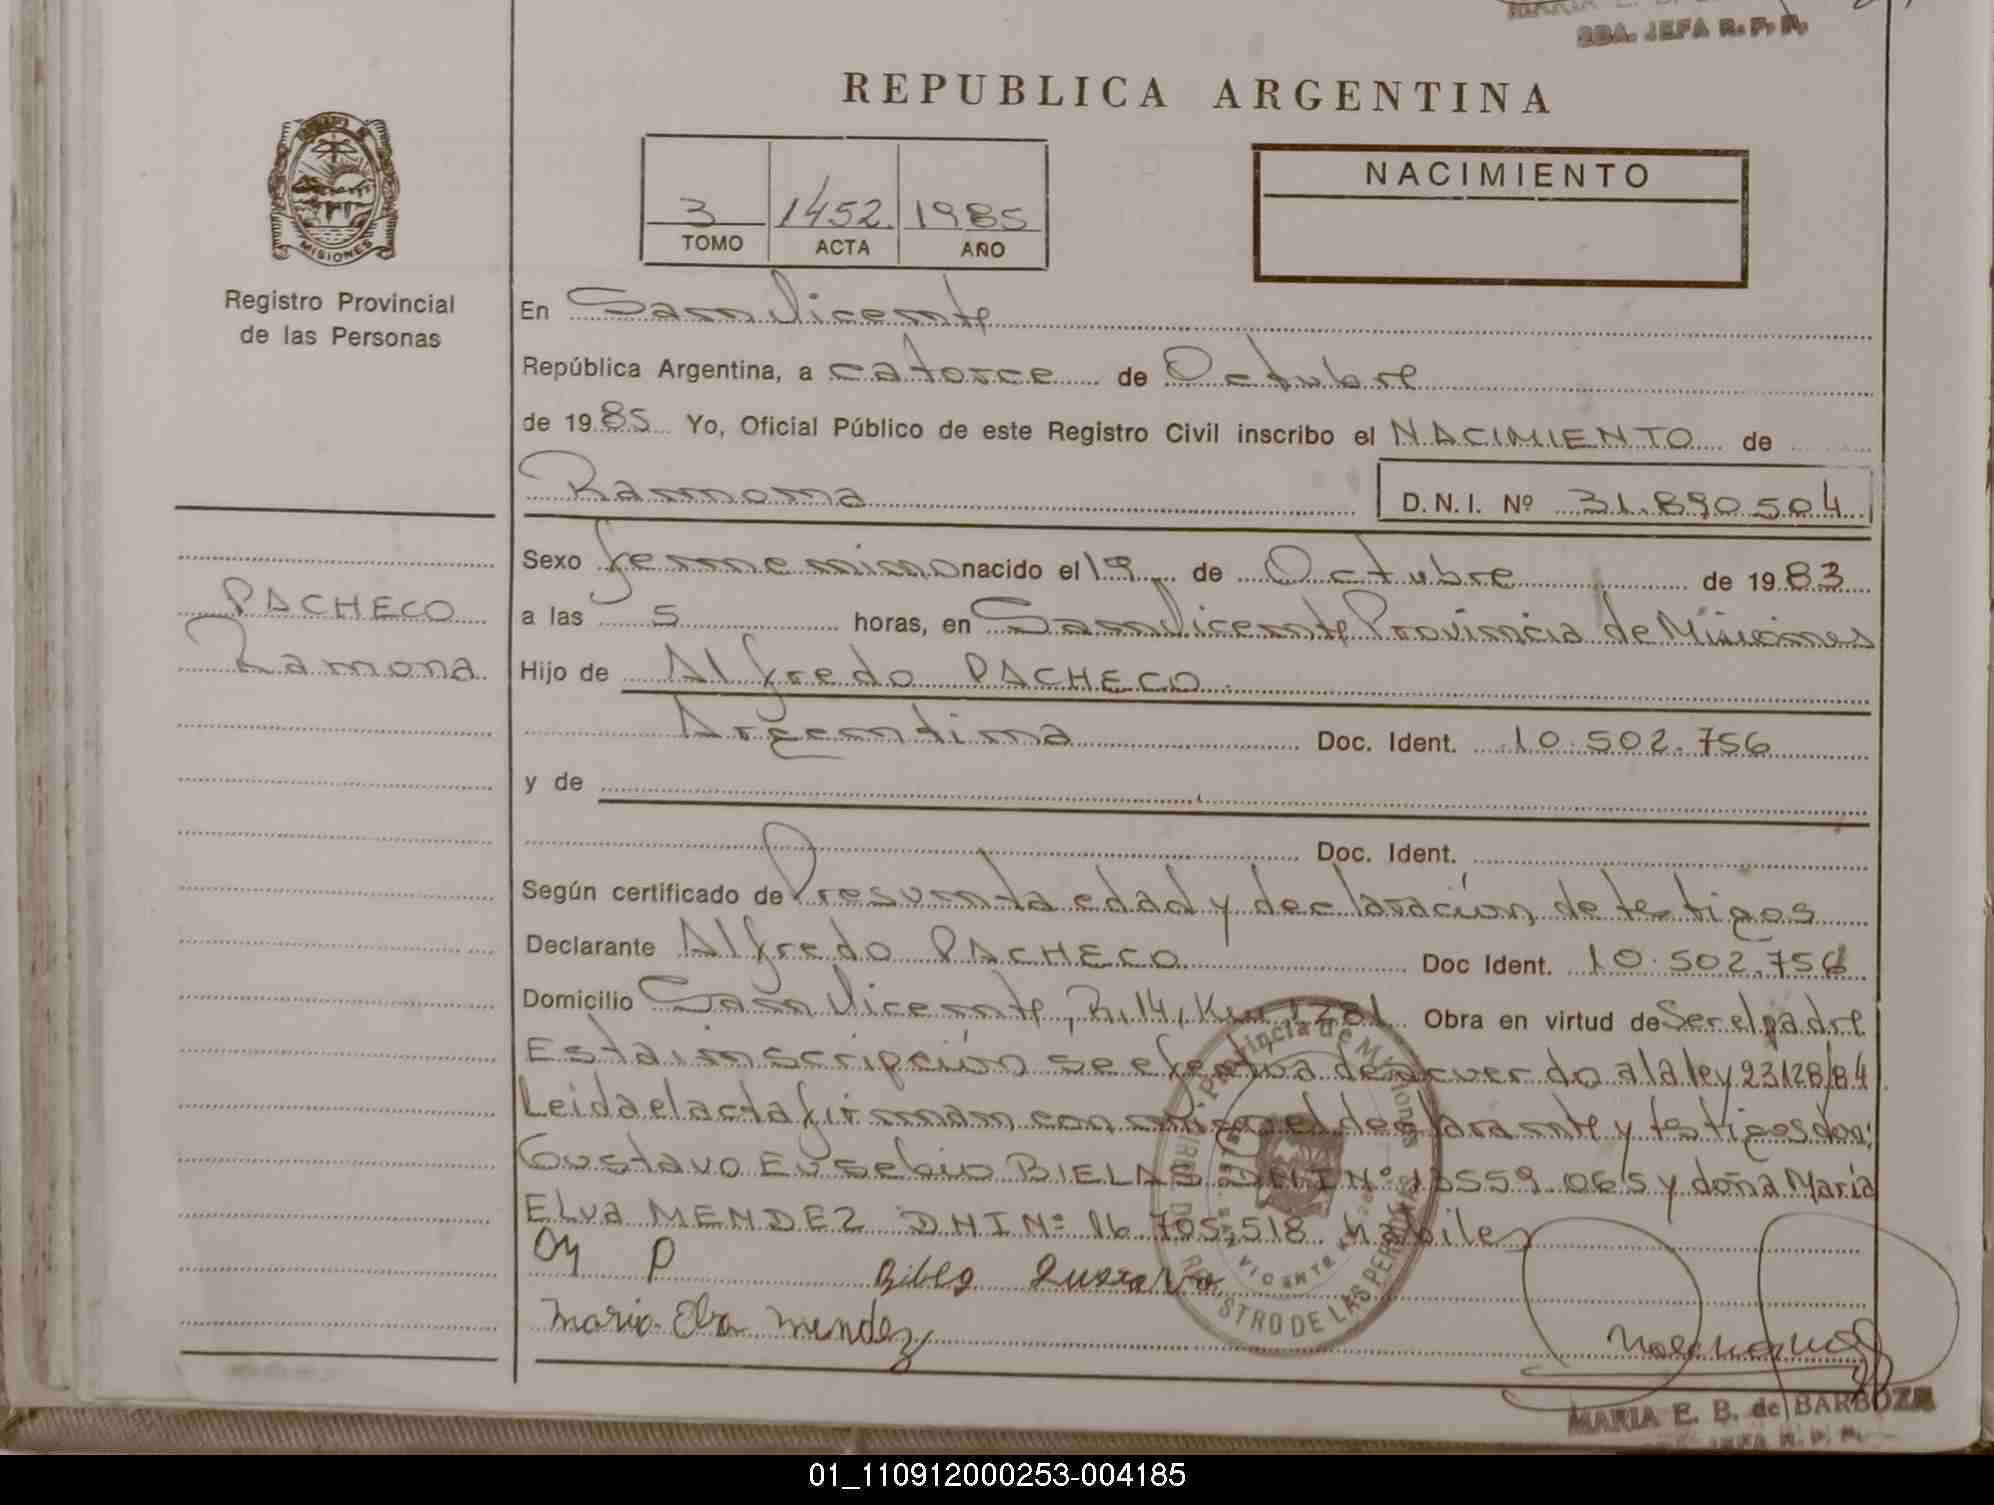 SBA. JEFA R. P. P.
REPUBLICA ARGENTINA
NACIMIENTO
3 1452. 1985
TOMO ACTA AÑO
MISIONES
Registro Provincial
de las Personas
En San Vicente
República Argentina, a catorce de Octubre
de 1985 Yo, Oficial Público de este Registro Civil inscribo el NACIMIENTO de
Ramona
D.N.I. Nº 31.890.504
Sexo femenino nacido el 19 de Octubre de 1983
PACHECO
a las 5 horas, en San Vicente Provincia de Misiones
Ramona
Hijo de Alfredo PACHECO
Argentina Doc. Ident. 10.502.756
y de
Doc. Ident.
Según certificado de Presunta edad y declaración de testigos
Declarante Alfredo PACHECO Doc Ident. 10.502.756
Domicilio San Vicente, R. 14, Km 1281 Obra en virtud de Ser el padre
Esta inscripción se efectua de acuerdo a la ley 23128/84
Leida el acta firman con migo el declarante y testigos don:
Gustavo Eusebio BIELAS DNI Nº 13559.065 y doña María
Elva MENDEZ DNI Nº 16.705.518 habiles
Maria Elva Mendez
Provincia de Misiones
REGISTRO DE LAS PERSONAS
MARIA E. B. de BARBOZA
JEFA R. P. P.
01_110912000253-004185